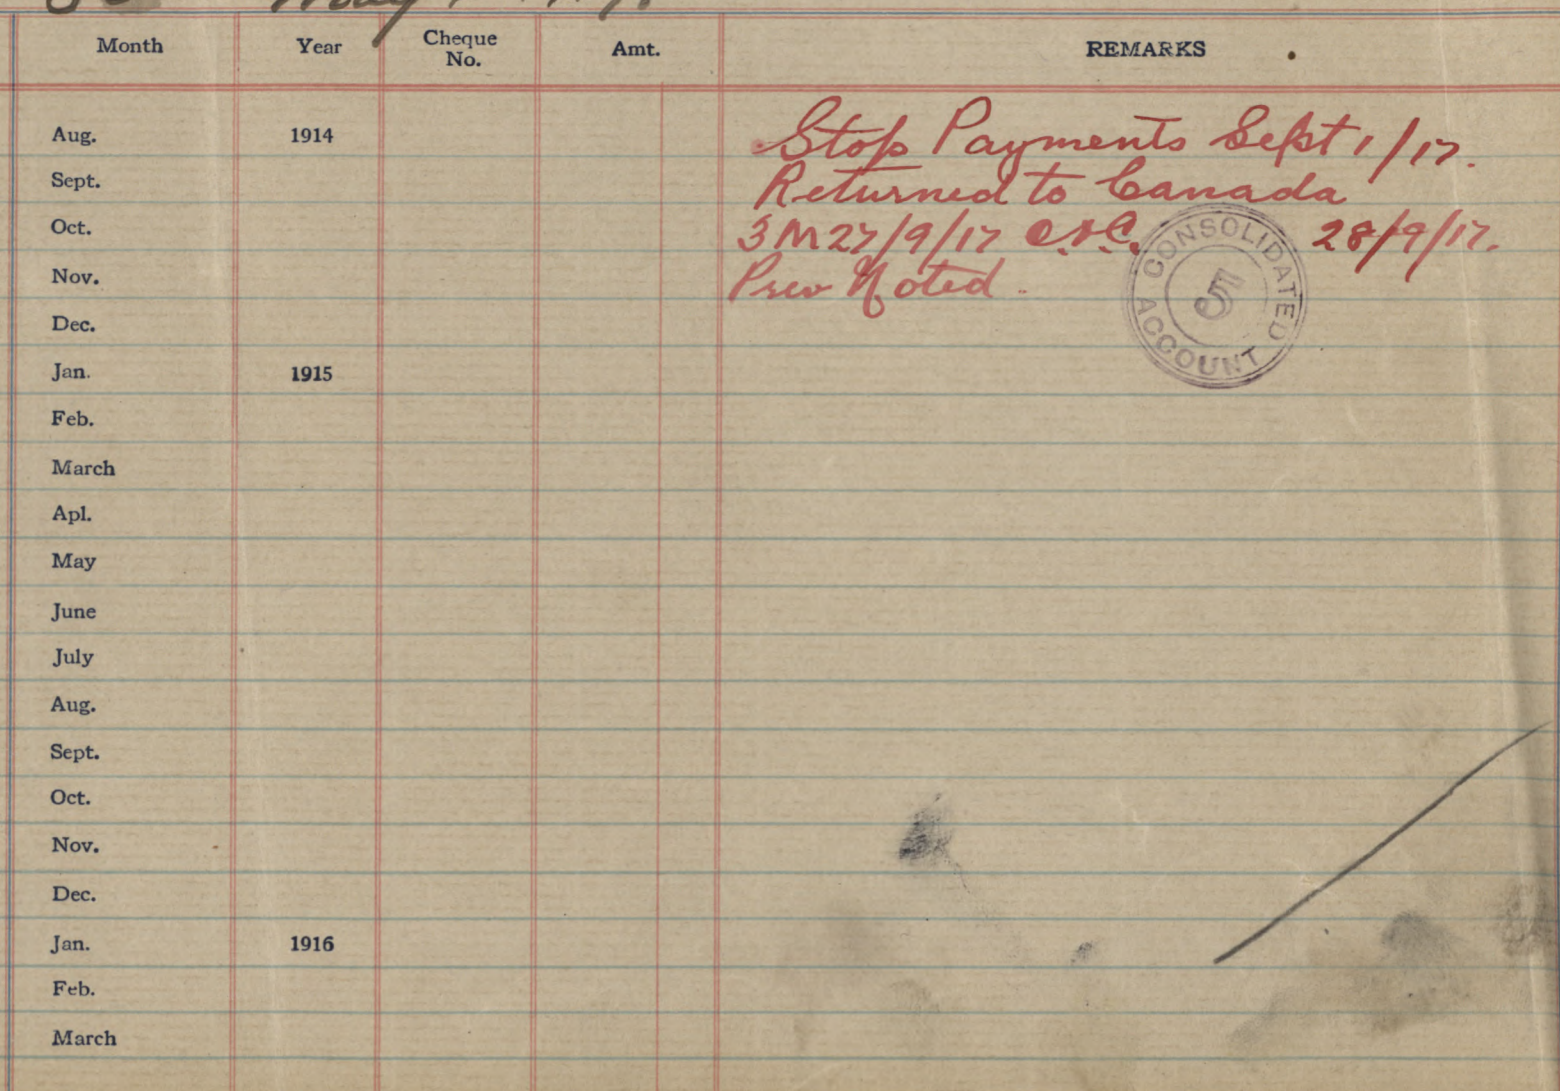 Month Year Cheque No. Amt. REMARKS
Aug. 1914 Stop Payments Sept 1/17.
Sept. Returned to Canada
Oct. 3 M 27/9/17 28/9/17.
Nov. Prev Noted.
Dec.
Jan. 1915
Feb.
March
Apl.
May
June
July
Aug.
Sept.
Oct.
Nov.
Dec.
Jan. 1916
Feb.
March
CONSOLIDATED ACCOUNT
5